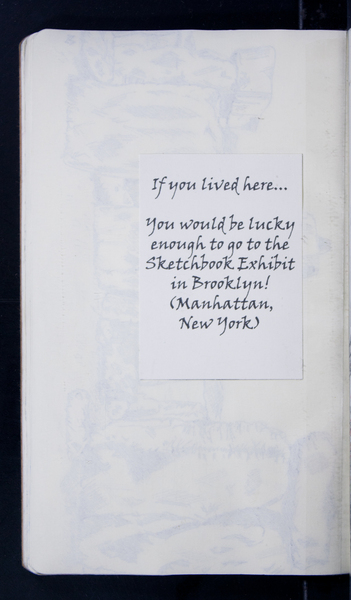 If you lived here...
You would be lucky
enough to go to the
Sketchbook Exhibit
in Brooklyn!
(Manhattan,
New York)